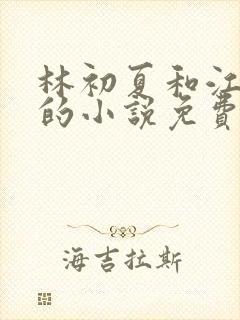 林初夏和江
的小説免費
海吉拉斯